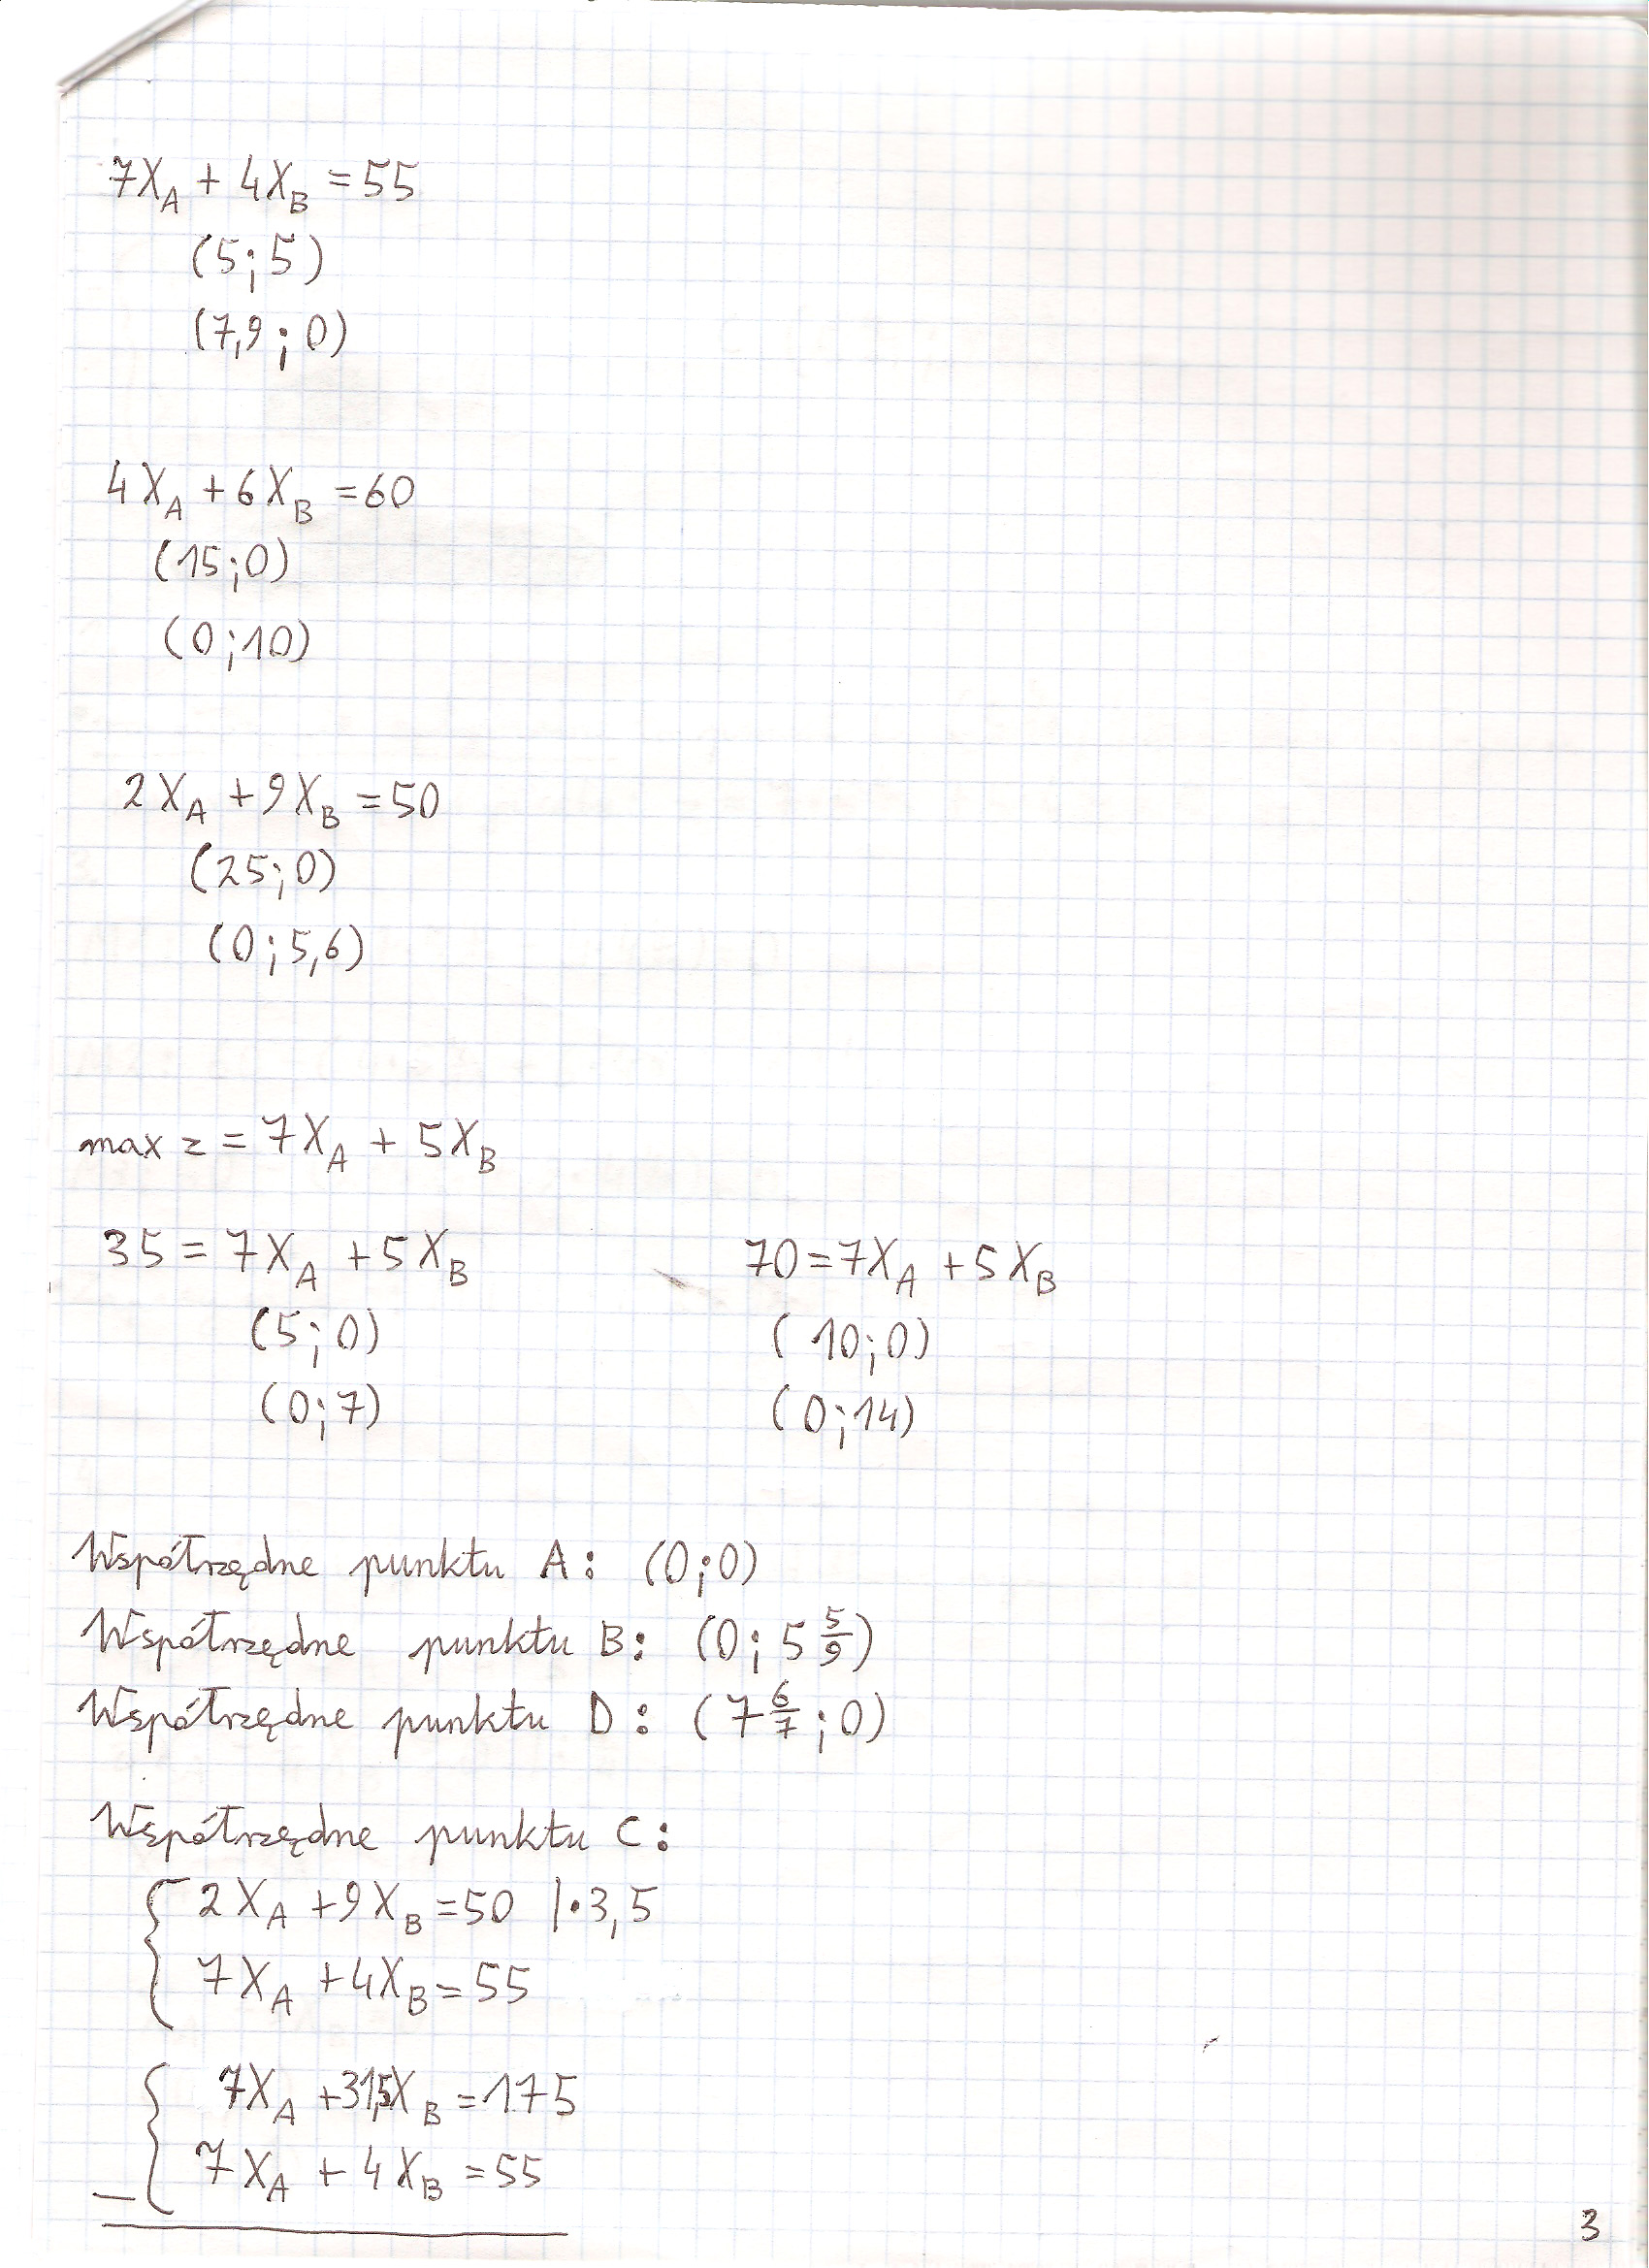 7X_A + 4X_B = 55
(5;5)
(7,9;0)
4X_A + 6X_B = 60
(15;0)
(0;10)
2X_A + 9X_B = 50
(25;0)
(0;5,6)
max z = 7X_A + 5X_B
35 = 7X_A + 5X_B
(5;0)
(0;7)
70 = 7X_A + 5X_B
(10;0)
(0;14)
Współrzędne punktu A: (0;0)
Współrzędne punktu B: (0; 5 5/9)
Współrzędne punktu D: (7 6/7; 0)
Współrzędne punktu C:
2X_A + 9X_B = 50 |·3,5
7X_A + 4X_B = 55
7X_A + 31,5X_B = 175
− 7X_A + 4X_B = 55
3